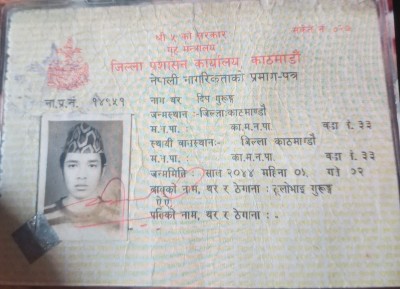 श्री ५ को सरकार
गृह मन्त्रालय
जिल्ला प्रशासन कार्यालय, काठमाडौं
नेपाली नागरिकताको प्रमाण-पत्र
ना.प्र.नं. १४९५१ नाम थर दिप गुरूङ्ग
जन्मस्थान :- जिल्ला:काठमाण्डौ
म.न.पा. : का.म.न.पा. वडा नं. ३३
स्थायी वासस्थान:- जिल्ला काठमाण्डौ
म.न.पा. : का.म.न.पा. वडा नं. ३३
जन्ममिति : साल २०४४ महिना ०५ गते १२
बाबुको नाम, थर र ठेगाना : गुरूङ्ग
ऐ ऐ
पतिको नाम, थर र ठेगाना : -